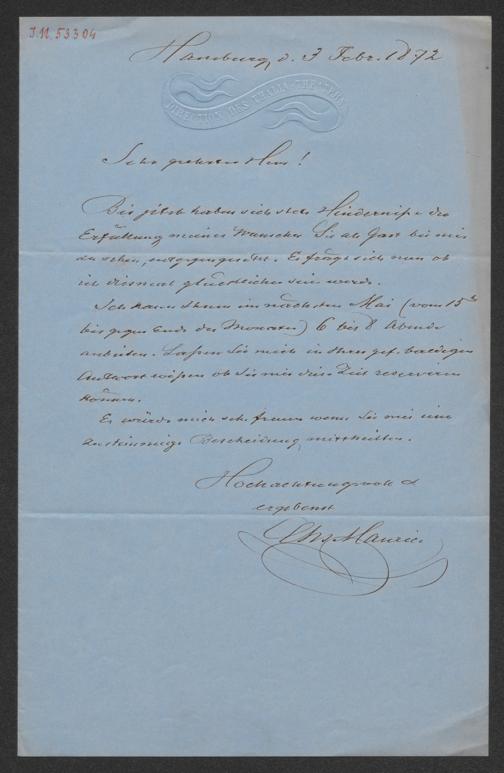 J.N. 53304
Hamburg, d. 3 Febr. 1872
DIRECTION DES THALIA-THEATERS
Sehr geehrter Herr!
Bis jetzt haben sich stets Hindernisse der
Erfüllung meines Wunsches Sie als Gast bei mir
zu sehen, entgegengesetzt. Es frägt sich nun ob
ich diesmal glücklicher sein werde.
Ich kann Ihnen im nächsten Mai (vom 15ten
bis gegen Ende des Monates) 6 bis 8 Abende
anbieten. Lassen Sie mich in Ihrer gef. baldigen
Antwort wissen ob Sie mir diese Zeit reserviren
können.
Es würde mich sehr freuen wenn Sie mir eine
zustimmige Bescheidung mittheilten.
Hochachtungsvoll &
ergebenst
Chs Maurice